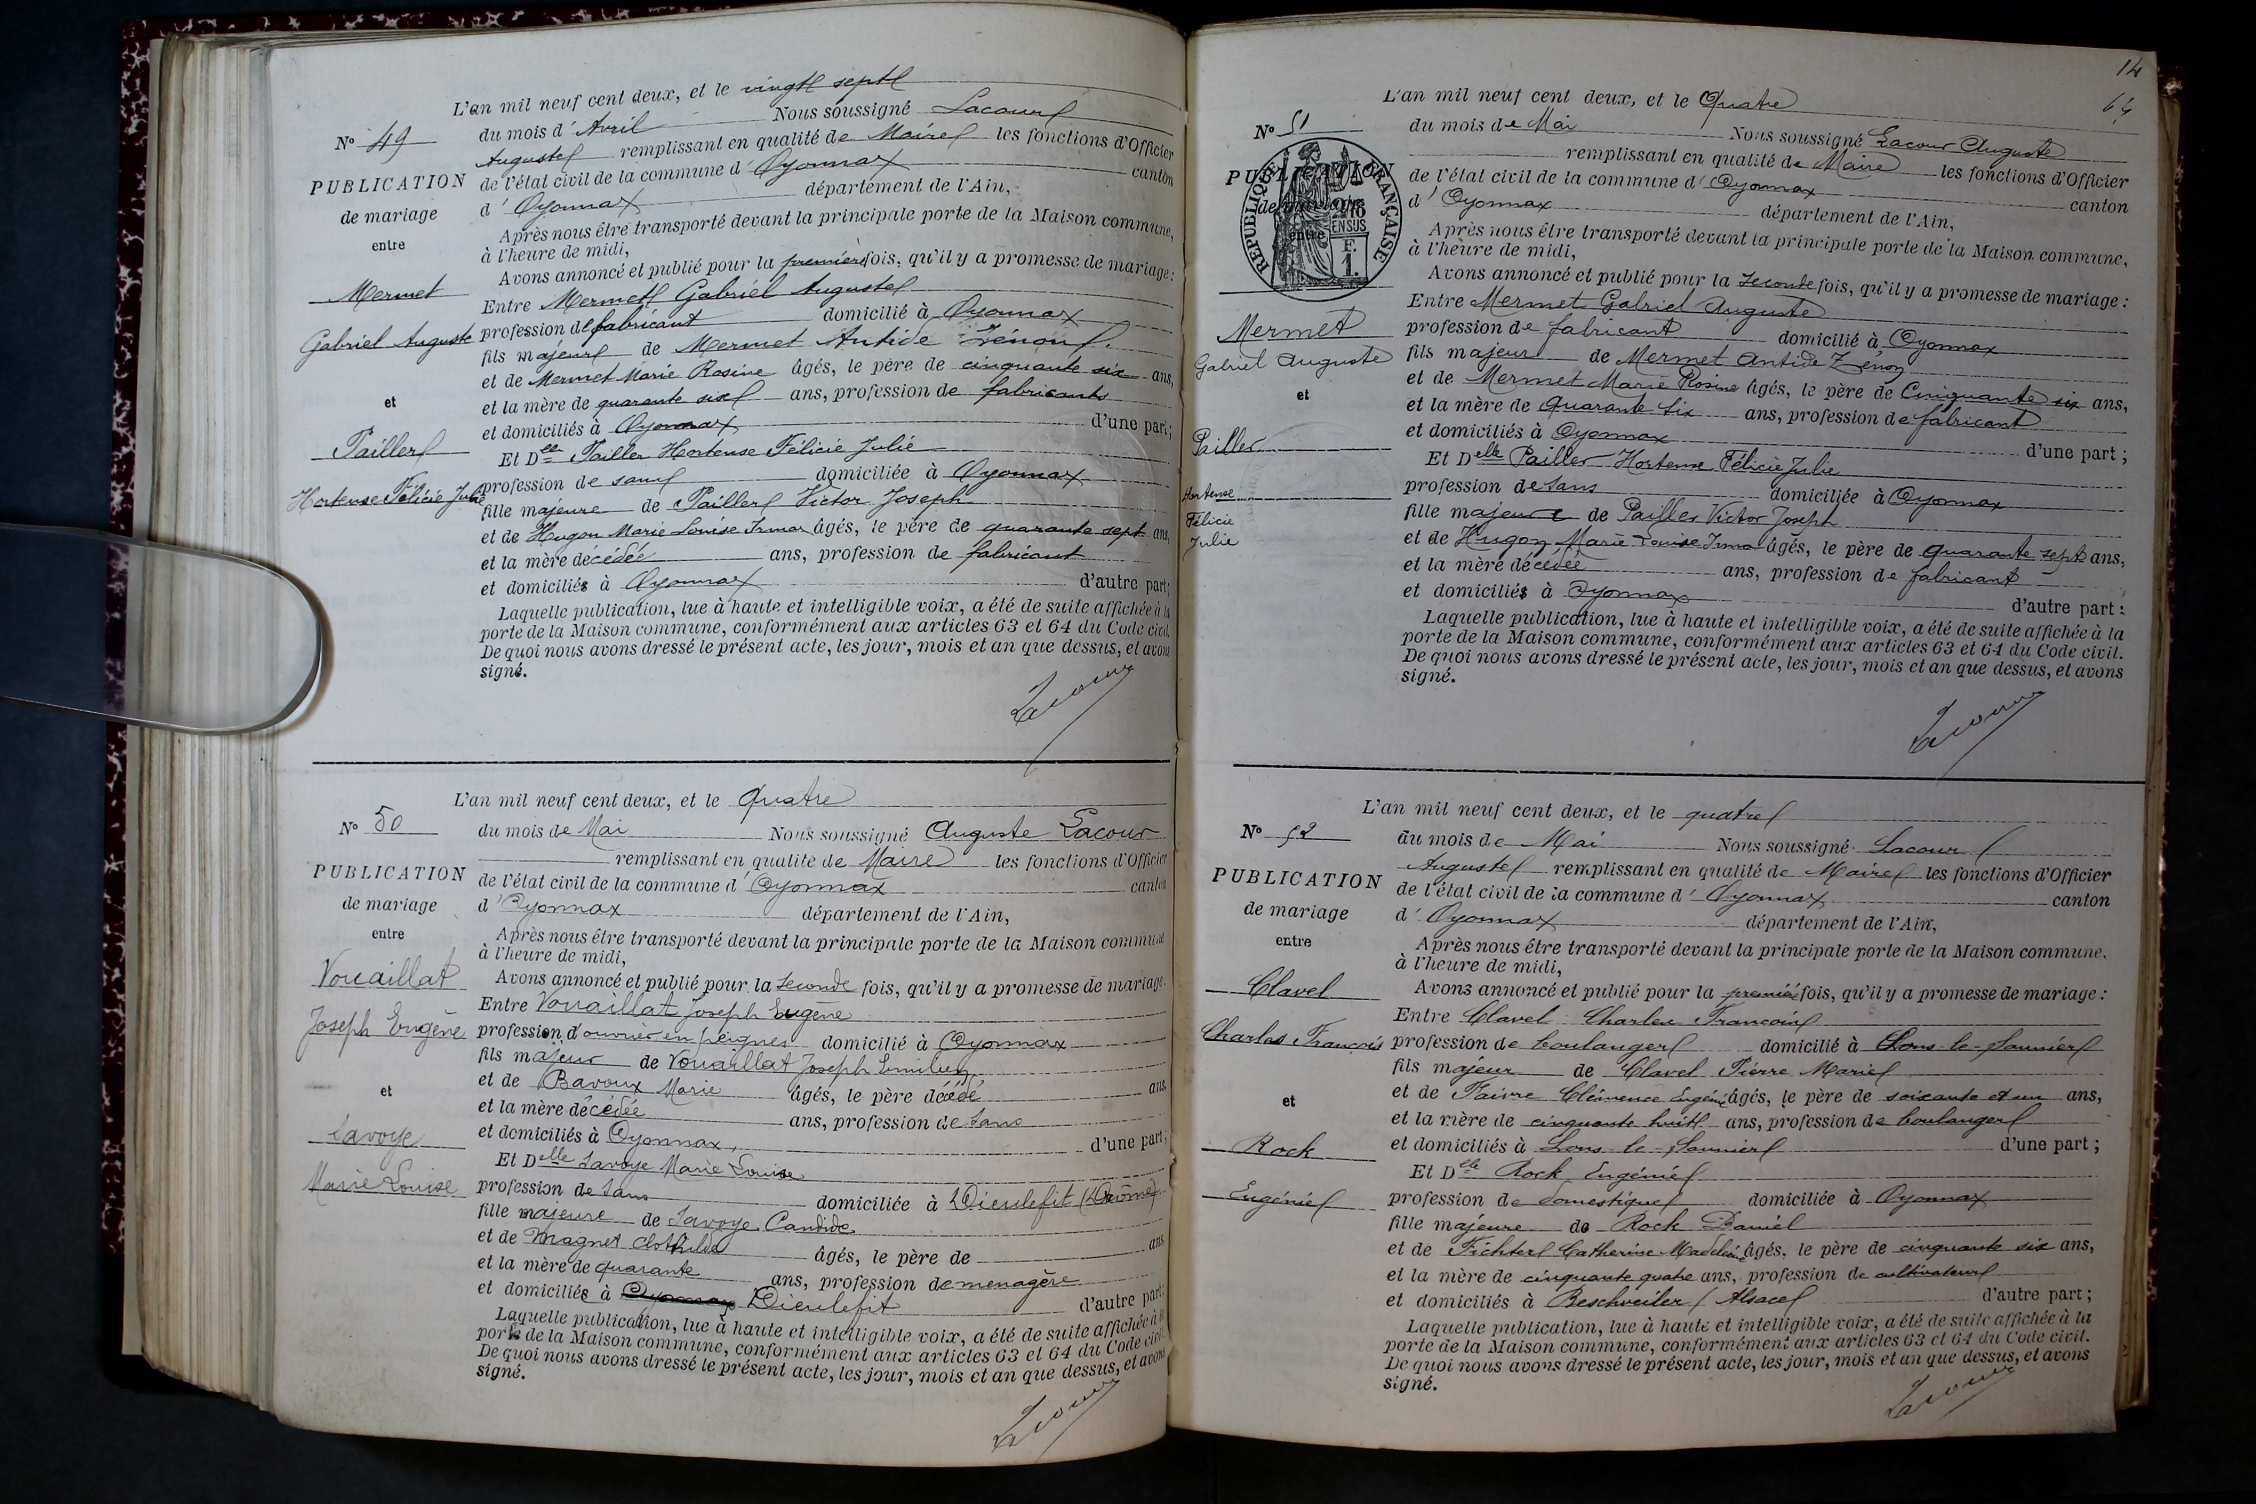 L'an mil neuf cent deux, et le vingt sept
N° 49 du mois d'Avril Nous soussigné Lacour
Auguste remplissant en qualité de Maire les fonctions d'Officier
PUBLICATION de l'état civil de la commune d'Oyonnax canton
de mariage d'Oyonnax département de l'Ain,
entre Après nous être transporté devant la principale porte de la Maison commune,
à l'heure de midi,
Avons annoncé et publié pour la première fois, qu'il y a promesse de mariage :
Mermet Entre Mermet Gabriel Auguste
Gabriel Auguste profession de fabricant domicilié à Oyonnax
fils majeur de Mermet Antide Zénon
et de Mermet Marie Rosine âgés, le père de cinquante six ans,
et et la mère de quarante six ans, profession de fabricants
et domiciliés à Oyonnax, d'une part;
Pailler Et Delle Pailler Hortense Félicie Julie
profession de sans domiciliée à Oyonnax
Hortense Félicie Julie fille majeure de Pailler Victor Joseph
et de Hugon Marie Louise Irma âgés, le père de quarante sept ans,
et la mère décédée ans, profession de fabricant
et domiciliés à Oyonnax d'autre part;
Laquelle publication, lue à haute et intelligible voix, a été de suite affichée à la
porte de la Maison commune, conformément aux articles 63 et 64 du Code civil.
De quoi nous avons dressé le présent acte, les jour, mois et an que dessus, et avons
signé.
Lacour
L'an mil neuf cent deux, et le Quatre
N° 50 du mois de Mai Nous soussigné Auguste Lacour
remplissant en qualité de Maire les fonctions d'Officier
PUBLICATION de l'état civil de la commune d'Oyonnax canton
de mariage d'Oyonnax département de l'Ain,
entre Après nous être transporté devant la principale porte de la Maison commune
à l'heure de midi,
Vouaillat Avons annoncé et publié pour la seconde fois, qu'il y a promesse de mariage.
Entre Vouaillat Joseph Eugène
Joseph Eugène profession d'ouvrier en peignes domicilié à Oyonnax
fils majeur de Vouaillat Joseph Emilien
et de Bavoux Marie âgés, le père décédé ans,
et et la mère décédée ans, profession de sans
et domiciliés à Oyonnax, d'une part;
Savoye Et Delle Savoye Marie Louise
Marie Louise profession de sans domiciliée à Dieulefit (Drôme)
fille majeure de Savoye Candide
et de Magnet Clothilde âgés, le père de ans
et la mère de quarante ans, profession de menagère
et domiciliés à Oyonnax Dieulefit d'autre part.
Laquelle publication, lue à haute et intelligible voix, a été de suite affichée à la
porte de la Maison commune, conformément aux articles 63 et 64 du Code civil.
De quoi nous avons dressé le présent acte, les jour, mois et an que dessus, et avons
signé.
Lacour
14
64
L'an mil neuf cent deux, et le Quatre
N° 51 du mois de Mai Nous soussigné Lacour Auguste
remplissant en qualité de Maire les fonctions d'Officier
PUBLICATION de l'état civil de la commune d'Oyonnax canton
de mariage d'Oyonnax département de l'Ain,
entre Après nous être transporté devant la principale porte de la Maison commune,
à l'heure de midi,
RÉPUBLIQUE FRANÇAISE
2/10 EN SUS
F. 1.
Avons annoncé et publié pour la seconde fois, qu'il y a promesse de mariage :
Mermet Entre Mermet Gabriel Auguste
profession de fabricant domicilié à Oyonnax
Gabriel Auguste fils majeur de Mermet Antide Zénon
et de Mermet Marie Rosine âgés, le père de Cinquante six ans,
et et la mère de Quarante six ans, profession de fabricant
et domiciliés à Oyonnax d'une part ;
Pailler Et Delle Pailler Hortense Félicie Julie
Hortense profession de sans domiciliée à Oyonnax
Félicie fille majeure de Pailler Victor Joseph
Julie et de Hugon Marie Louise Irma âgés, le père de quarante sept ans,
et la mère décédée ans, profession de fabricant
et domiciliés à Oyonnax d'autre part :
Laquelle publication, lue à haute et intelligible voix, a été de suite affichée à la
porte de la Maison commune, conformément aux articles 63 et 64 du Code civil.
De quoi nous avons dressé le présent acte, les jour, mois et an que dessus, et avons
signé.
Lacour
L'an mil neuf cent deux, et le quatre
N° 52 du mois de Mai Nous soussigné Lacour
Auguste remplissant en qualité de Maire les fonctions d'Officier
PUBLICATION de l'état civil de la commune d'Oyonnax canton
de mariage d'Oyonnax département de l'Ain,
entre Après nous être transporté devant la principale porte de la Maison commune.
à l'heure de midi,
Clavel Avons annoncé et publié pour la première fois, qu'il y a promesse de mariage :
Entre Clavel Charles François
Charles François profession de boulanger domicilié à Lons-le-Saunier
fils majeur de Clavel Pierre Marie
et et de Faivre Clémence Eugénie âgés, le père de soixante et un ans,
et la mère de cinquante huit ans, profession de boulanger
Rock et domiciliés à Lons-le-Saunier d'une part ;
Et Delle Rock Eugénie
Eugénie profession de domestique domiciliée à Oyonnax
fille majeure de Rock Daniel
et de Fichter Catherine Madeleine âgés, le père de cinquante six ans,
et la mère de cinquante quatre ans, profession de cultivateurs
et domiciliés à Beschweiler (Alsace) d'autre part ;
Laquelle publication, lue à haute et intelligible voix, a été de suite affichée à la
porte de la Maison commune, conformément aux articles 63 et 64 du Code civil.
De quoi nous avons dressé le présent acte, les jour, mois et an que dessus, et avons
signé.
Lacour